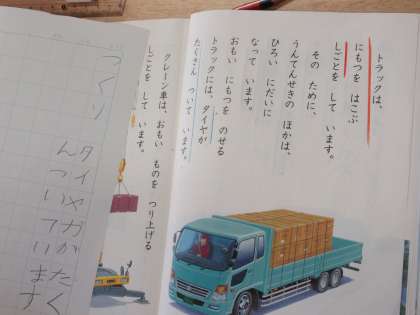 トラックは、
にもつを はこぶ
しごとを して います。
その ために、
うんてんせきの ほかは、
ひろい にだいに
なって います。
おもい にもつを のせる
トラックには、タイヤが
たくさん ついて います。
クレーン車は、おもい ものを つり上げる
しごとを して います。
つくり
タイヤガがたく
んついています